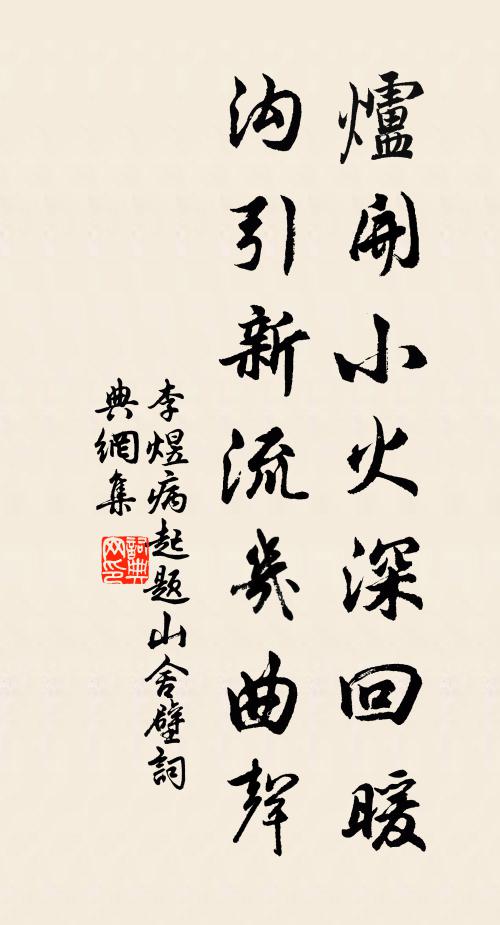 爐開小火深回暖
沟引新流幾曲聲
李煜病起题山舍壁詞
典網集
詞典
网印